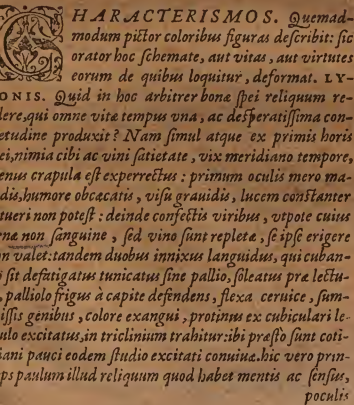 CHARACTERISMOS. Quemad-
modum pictor coloribus figuras describit: sic
orator hoc schemate, aut vitas, aut virtutes
eorum de quibus loquitur, deformat. LY-
ONIS. Quid in hoc arbitrer bonæ spei reliquum re-
dere, qui omne vitæ tempus vna, ac desperatissima con-
etudine produxit? Nam simul atque ex primis horis
ei, nimia cibi ac vini satietate, vix meridiano tempore,
enus crapula est experrectus: primum oculis mero ma-
dis, humore obcæcatis, visu grauidis, lucem constanter
tueri non potest: deinde confectis viribus, vtpote cuius
næ non sanguine, sed vino sunt repletæ, se ipse erigere
n valet: tandem duobus innixus languidus, qui cuban-
sit defatigatus tunicatus sine pallio, soleatus præ lectu-
, palliolo frigus à capite defendens, flexa ceruice, sum-
issis genibus, colore exangui, protinus ex cubiculari le-
ulo excitatus, in triclinium trahitur: ibi præsto sunt coti-
iani pauci eodem studio excitati conuiuæ. hic vero prin-
ps paulum illud reliquum quod habet mentis ac sensus,
poculis